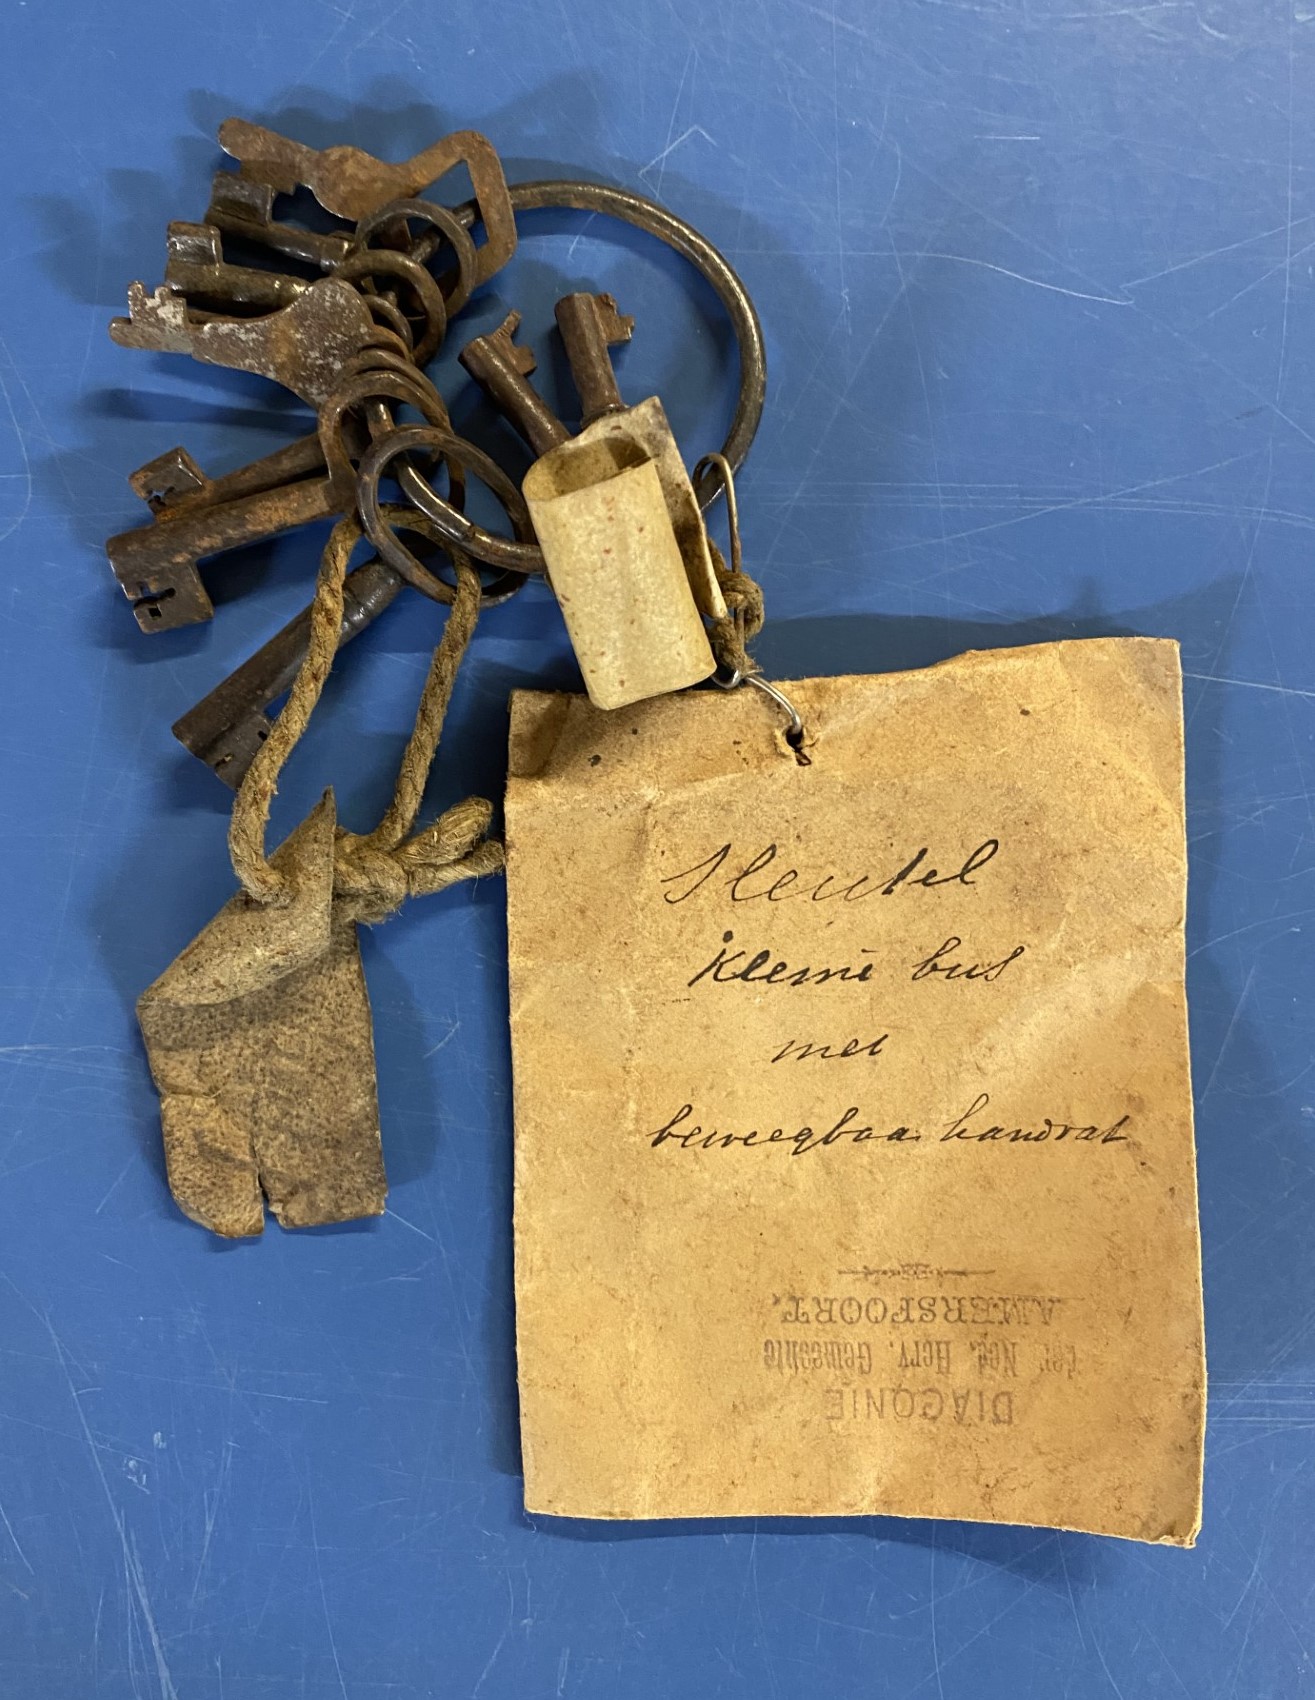 Sleutel
kleine bus
met
beweegbaar handvat
DIACONIE
der Ned. Herv. Gemeente
AMERSFOORT.